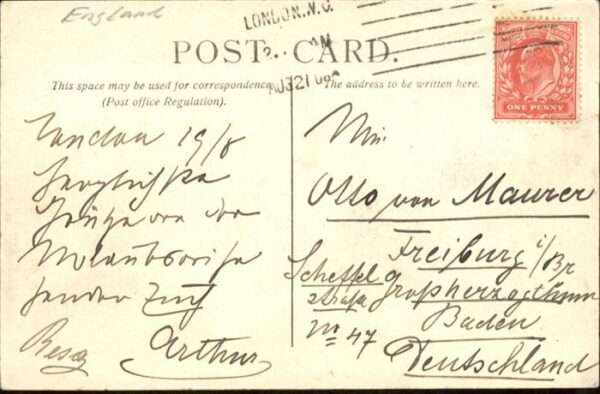 England
LONDON. N.C.
AM
AU 21 08
POST CARD.
This space may be used for correspondence
(Post office Regulation).
The address to be written here.
ONE PENNY
London 19/8
Herzlichste
Grüße von der
Urlaubsreise
sendet Euch
Arthur
Otto von Maurer
Freiburg i/Br
Scheffel
straße
Nr 47
Großherzogthum
Baden
Deutschland